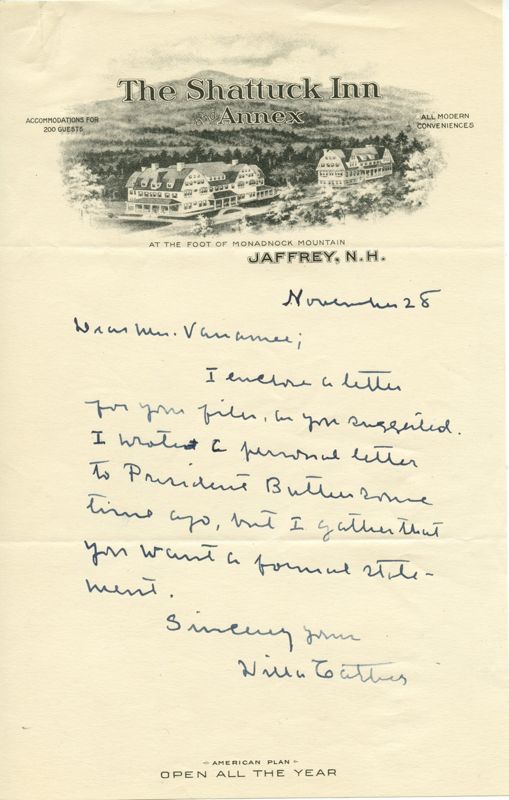 The Shattuck Inn
and Annex
ACCOMMODATIONS FOR
200 GUESTS
ALL MODERN
CONVENIENCES
AT THE FOOT OF MONADNOCK MOUNTAIN
JAFFREY, N.H.
November 28
Dear Mrs. Vanamee;
I enclose a letter
for your files, as you suggested.
I wrote a personal letter
to President Butler some
time ago, but I gather that
you want a formal state-
ment.
Sincerely yours
Willa Cather
AMERICAN PLAN
OPEN ALL THE YEAR